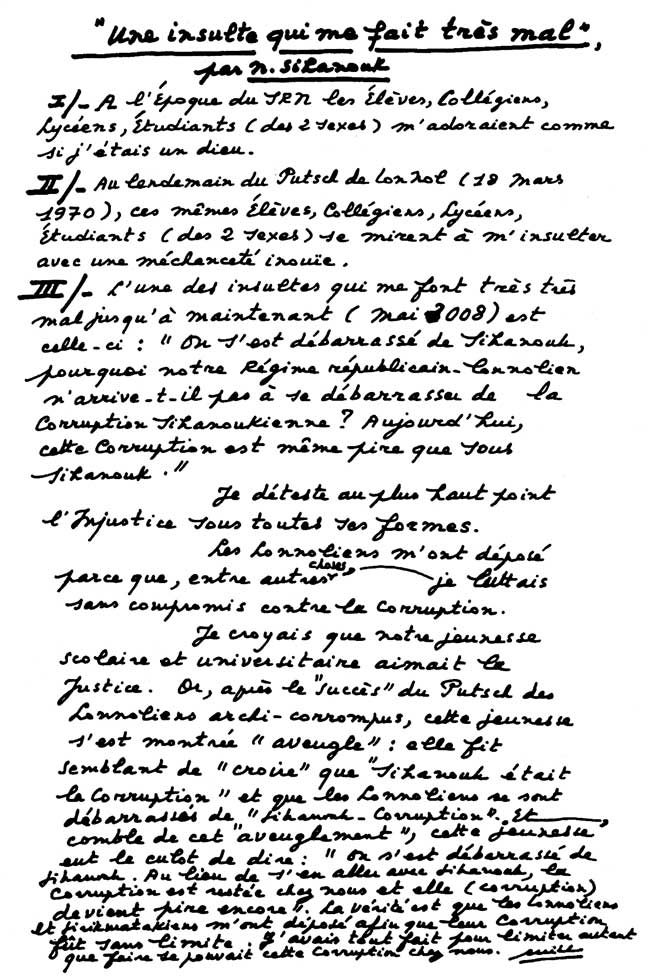 "Une insulte qui me fait très mal",
par N. Sihanouk
I/- A l'Époque du SRN les Élèves, Collégiens,
Lycéens, Étudiants (des 2 sexes) m'adoraient comme
si j'étais un dieu.
II/- Au lendemain du Putsch de Lon Nol (18 Mars
1970), ces mêmes Élèves, Collégiens, Lycéens,
Étudiants (des 2 sexes) se mirent à m'insulter
avec une méchanceté inouïe.
III/- L'une des insultes qui me font très très
mal jusqu'à maintenant (Mai 2008) est
celle-ci : "On s'est débarrassé de Sihanouk,
pourquoi notre Régime républicain-lonnolien
n'arrive-t-il pas à se débarrasser de la
Corruption Sihanoukienne ? Aujourd'hui,
cette Corruption est même pire que sous
Sihanouk."
Je déteste au plus haut point
l'Injustice sous toutes ses formes.
Les Lonnoliens m'ont déposé
parce que, entre autres choses, je luttais
sans compromis contre la Corruption.
Je croyais que notre jeunesse
scolaire et universitaire aimait la
Justice. Or, après le "succès" du Putsch des
Lonnoliens archi-corrompus, cette jeunesse
s'est montrée "aveugle" : elle fit
semblant de "croire" que "Sihanouk était
la Corruption" et que les Lonnoliens se sont
débarrassés de "Sihanouk-Corruption". Et,
comble de cet "aveuglement", cette jeunesse
eut le culot de dire : "On s'est débarrassé de
Sihanouk. Au lieu de s'en aller avec Sihanouk, la
Corruption est restée chez nous et elle (corruption)
devient pire encore". La vérité est que les Lonnoliens
et Sirikmatakiens m'ont déposé afin que leur Corruption
fût sans limite. J'avais tout fait pour limiter autant
que faire se pouvait cette Corruption chez nous. suite